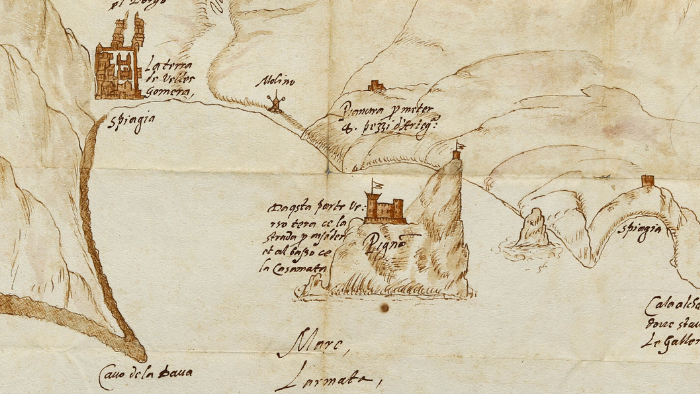 el Borgo
La terra
de Velles
Gomera,
Spiagia
Molino
Pianura p meter
pezzi d'Arteg:
Daqsta parte ve
rso tera ce la
strada p
et al basso ce
la Casamata
Pignon
Spiagia
Cala
doue
Le Galler
Mare,
Larmata,
Cauo de la Baua